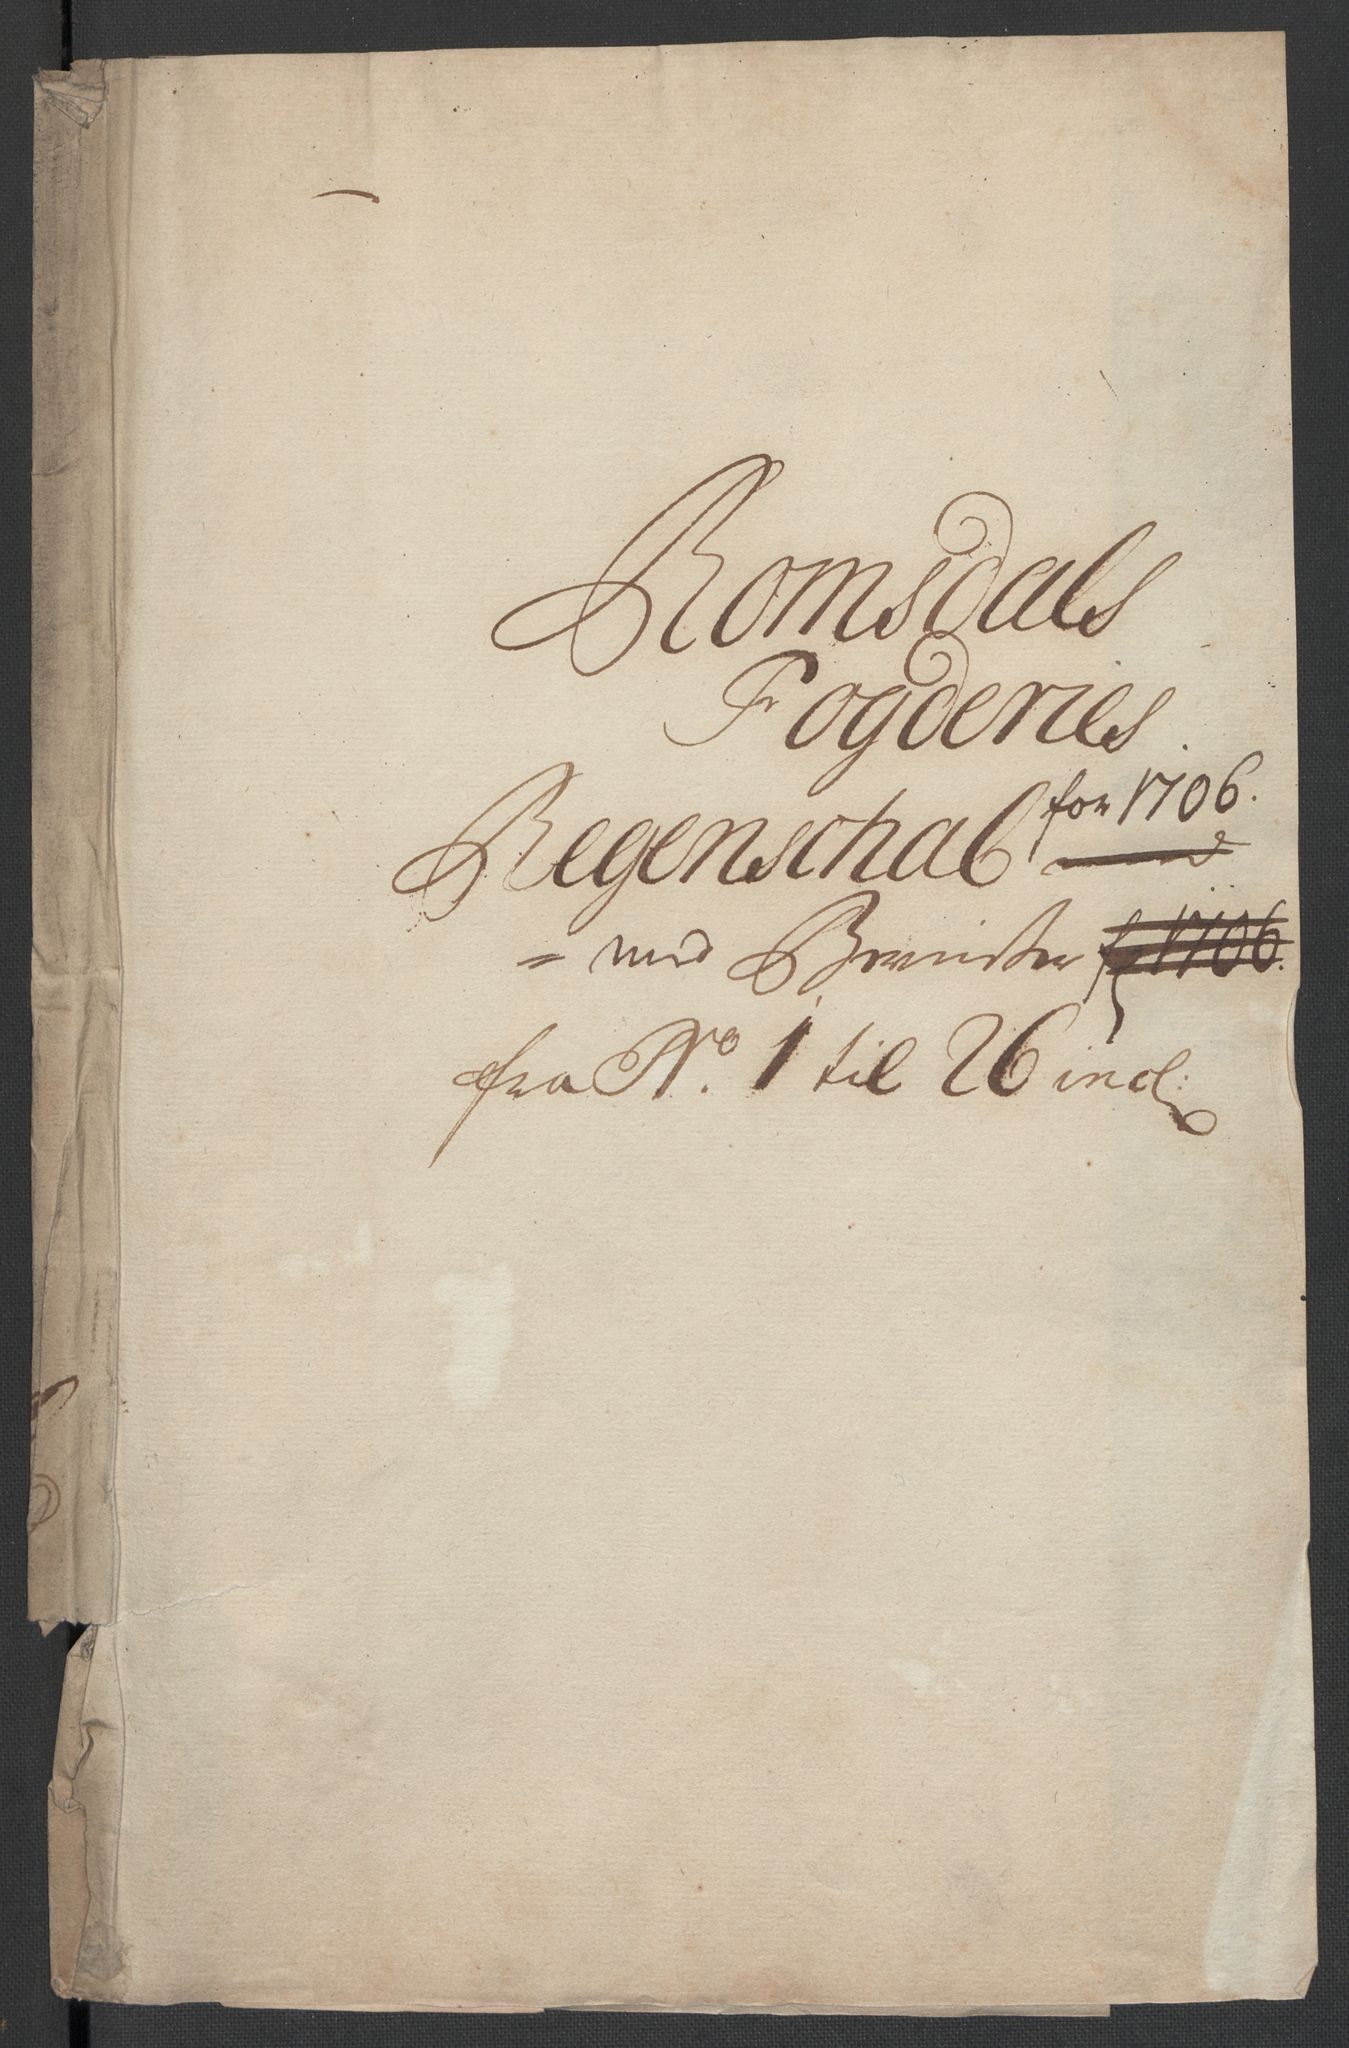 Romsdals
Fogderies
Regenschab for 1706.
= med Beviiser for 1706.
fra No. 1 til 26 incl: